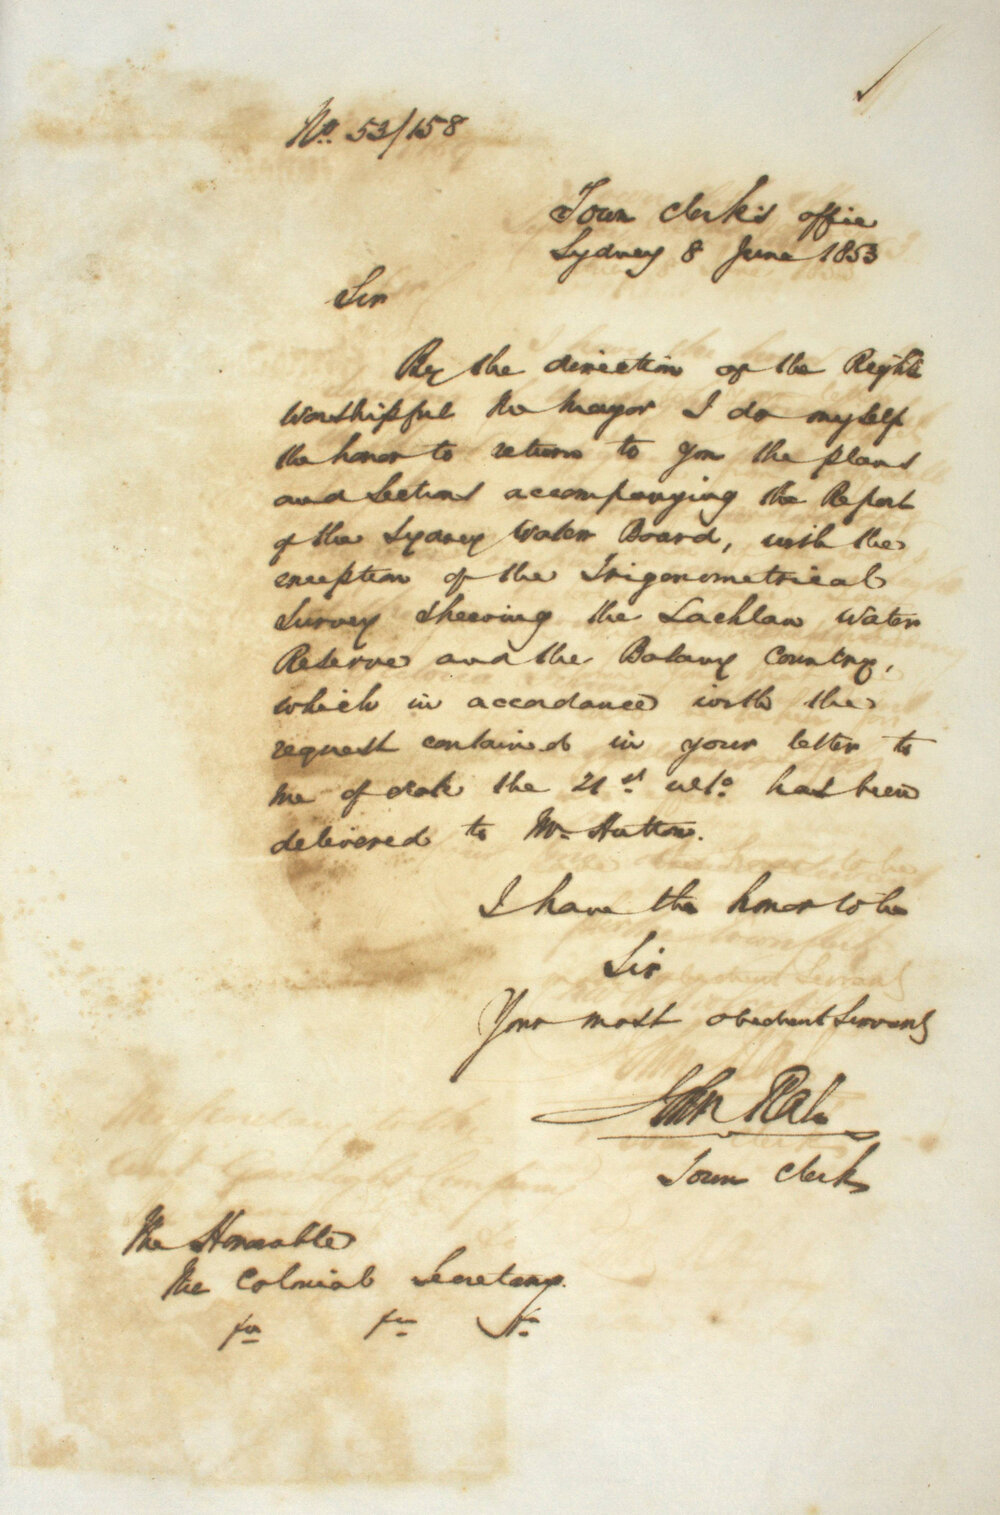 No. 53/158
Town Clerk's office
Sydney 8 June 1853
Sir
By the direction of the Right
Worshipful the Mayor I do myself
the honor to return to you the plans
and Sections accompanying the Report
of the Sydney Water Board, with the
exception of the Trigonometrical
Survey shewing the Lachlan Water
Reserve and the Botany Country,
which in accordance with the
request contained in your letter to
me of date the 21st ulto. has been
delivered to Mr. Hutton.
I have the honor to be
Sir
Your most obedient Servant
John Rae
Town Clerk
The Honorable
The Colonial Secretary.